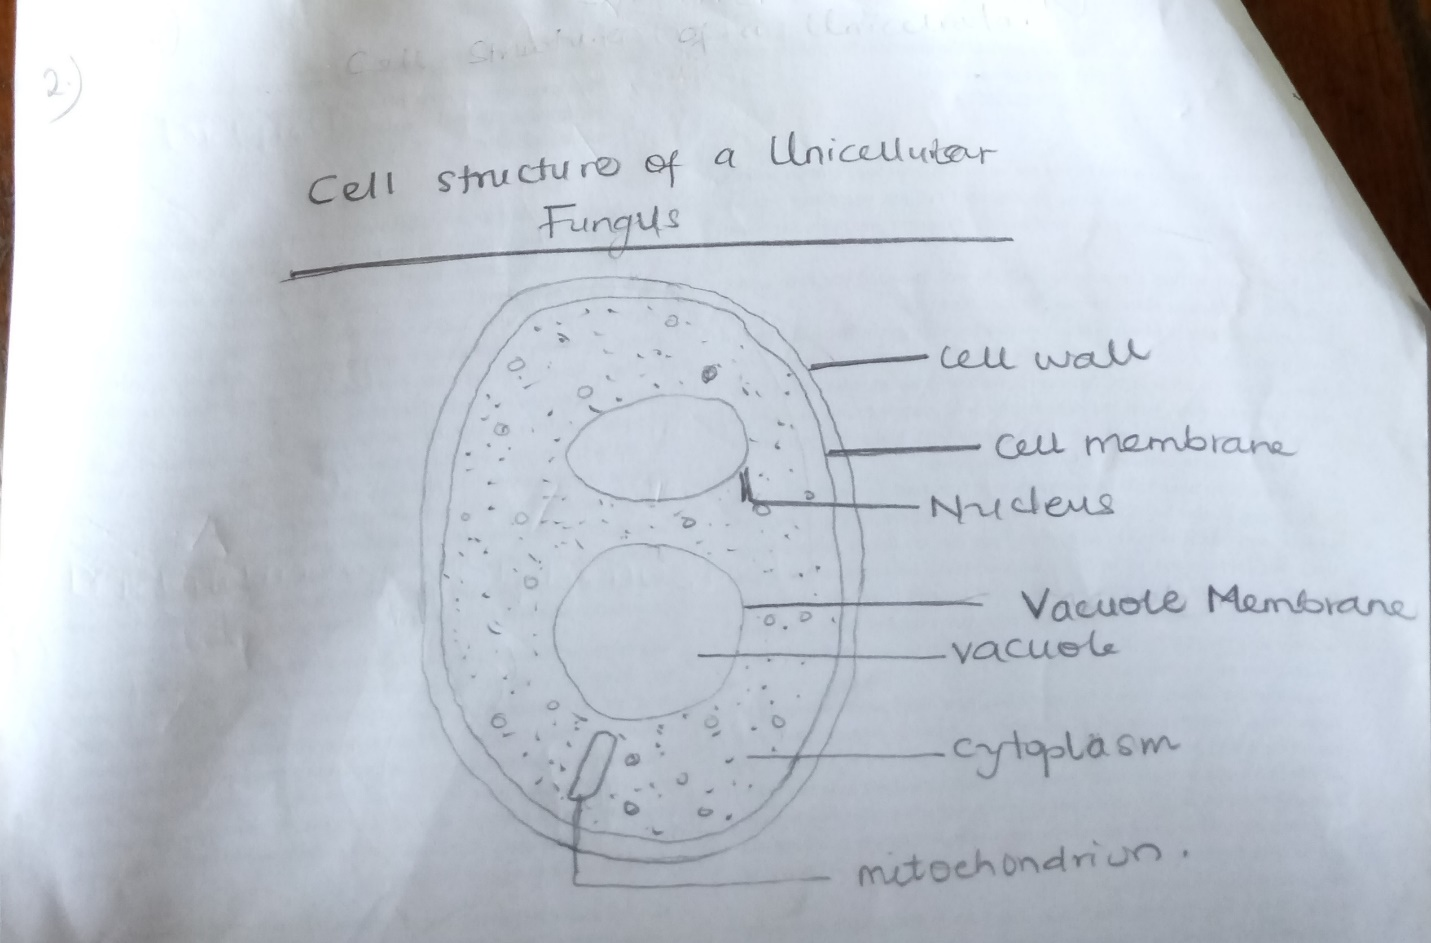 2.)
Cell structure of a Unicellular
Fungus
cell wall
cell membrane
Nucleus
Vacuole Membrane
vacuole
cytoplasm
mitochondrion.